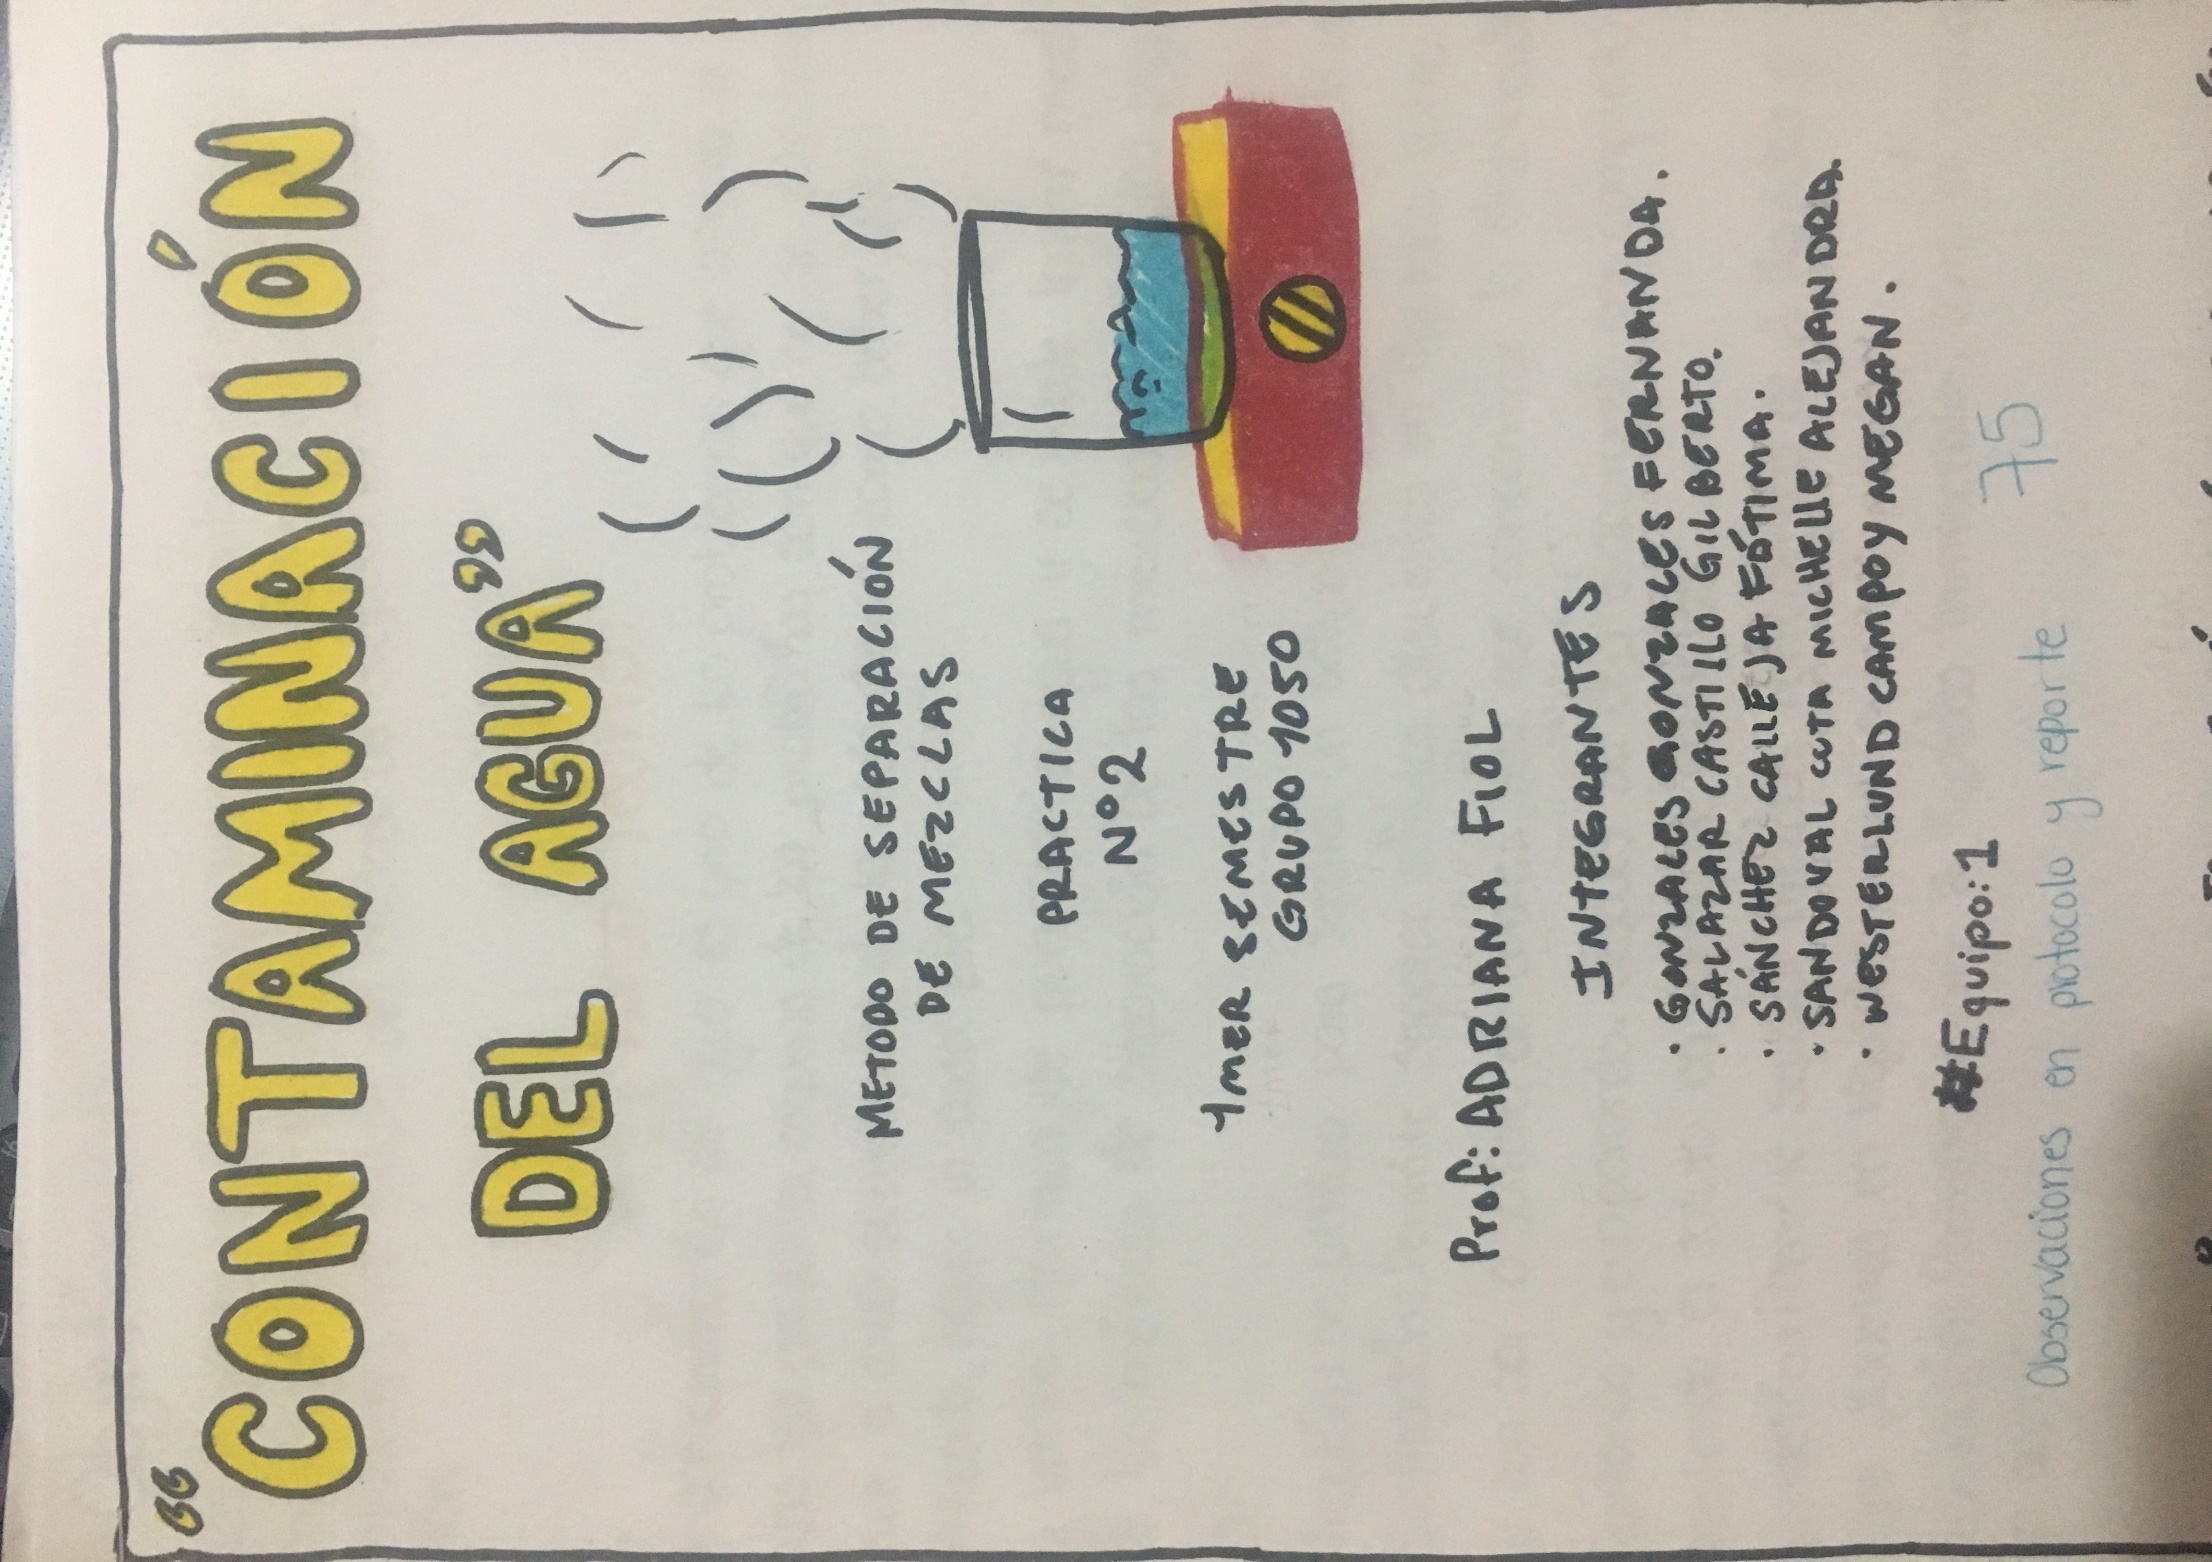 "CONTAMINACIÓN
DEL AGUA"
METODO DE SEPARACIÓN
DE MEZCLAS
PRACTICA
Nº2
1MER SEMESTRE
GRUPO 1050
Prof: ADRIANA FIOL
INTEGRANTES
• GONZALES GONZALES FERNANDA.
• SALAZAR CASTILLO GILBERTO.
• SÁNCHEZ CALLEJA FÁTIMA.
• SANDOVAL COTA MICHELLE ALEJANDRA.
• WESTERLUND CAMPOY MEGAN.
#Equipo:1
75
Observaciones en protocolo y reporte